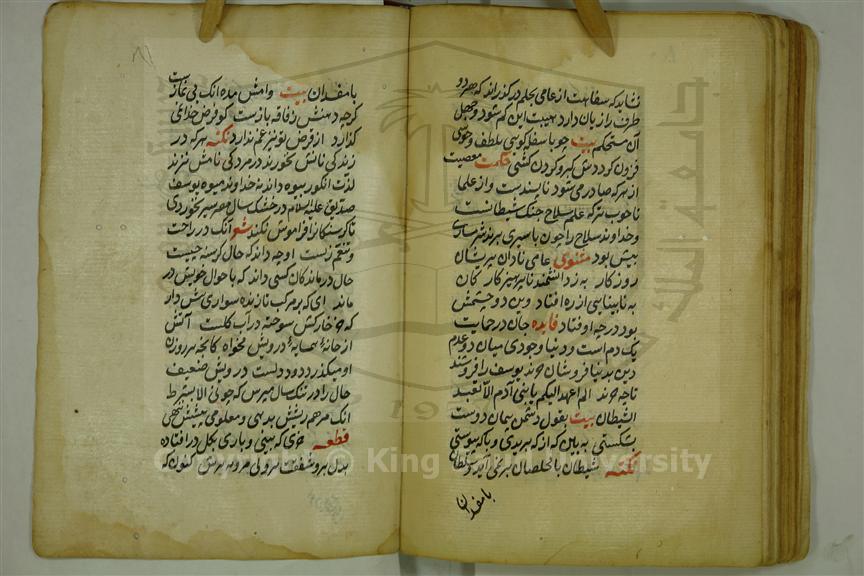 نشاید که سفاهت از عامی بحلم در کذراند که هر دو
طرف را زیان دارد هیبت این کم شود و جهل
آن مستحکم بیت چو با سفله کویی بلطف و خوشی
فزون کرددش کبر و کردن کشی حکمت معصیت
از هر که صادر می شود ناپسندست و از علما
ناخوب تر که علم سلاح جنک شیطانست
و خداوند سلاح را چون باسیری برند شرمساری
بیش بود مثنوی عامی نادان پریشان
روزکار به ز دانشمند ناپرهیزکار کان
به نابینایی از ره افتاد وین دو چشمش
بود در چه اوفتاد فایده جان در حمایت
یک دم است و دنیا وجودی میان دو عدم
دین بدنیا فروشان خرند یوسف را فروشند
تا چه خرند الم اعهد الیکم یا بنی آدم الا تعبدوا
الشیطان بیت بقول دشمن پیمان دوست
بشکستی به بین که از که بریدی و با که پیوستی
نکته شیطان با مخلصان بر نمی آید و سلطان
با مفلسان
با مفلسان بیت وامش مده انک بی نمازست
کرچه دهنش ز فاقه بازست کو فرض خدا نمی
کذارد از قرض تو نیز غم ندارد نکته هر که در
زندکی نانش نخورند در مردکی نامش نبرند
لذت انکور بیوه داند نه خداوند میوه یوسف
صدیق علیه السلام در خشک سال مصر سیر نخوردی
تا کرسنکانرا فراموش نکند شعر آنک در راحت
و تنعم زیست او چه داند که حال کرسنه چیست
حال درماندکان کسی داند که باحوال خویش در
ماند ای که بر مرکب تازنده سواری هش دار
که خر خارکش سوخته در آب کلست آتش
از خانهٔ همسایهٔ درویش مخواه کانچه بر روزن
او میکذرد دود دلست درویش ضعیف
حال را در تنک سال مپرس که چونی الا بشرط
انک مرهم ریشش بدهی و معلومی پیشش نهی
قطعه خری که بینی و باری بکل در افتاده
بدل برو شفقت کن ولی مرو بسرش کنون که